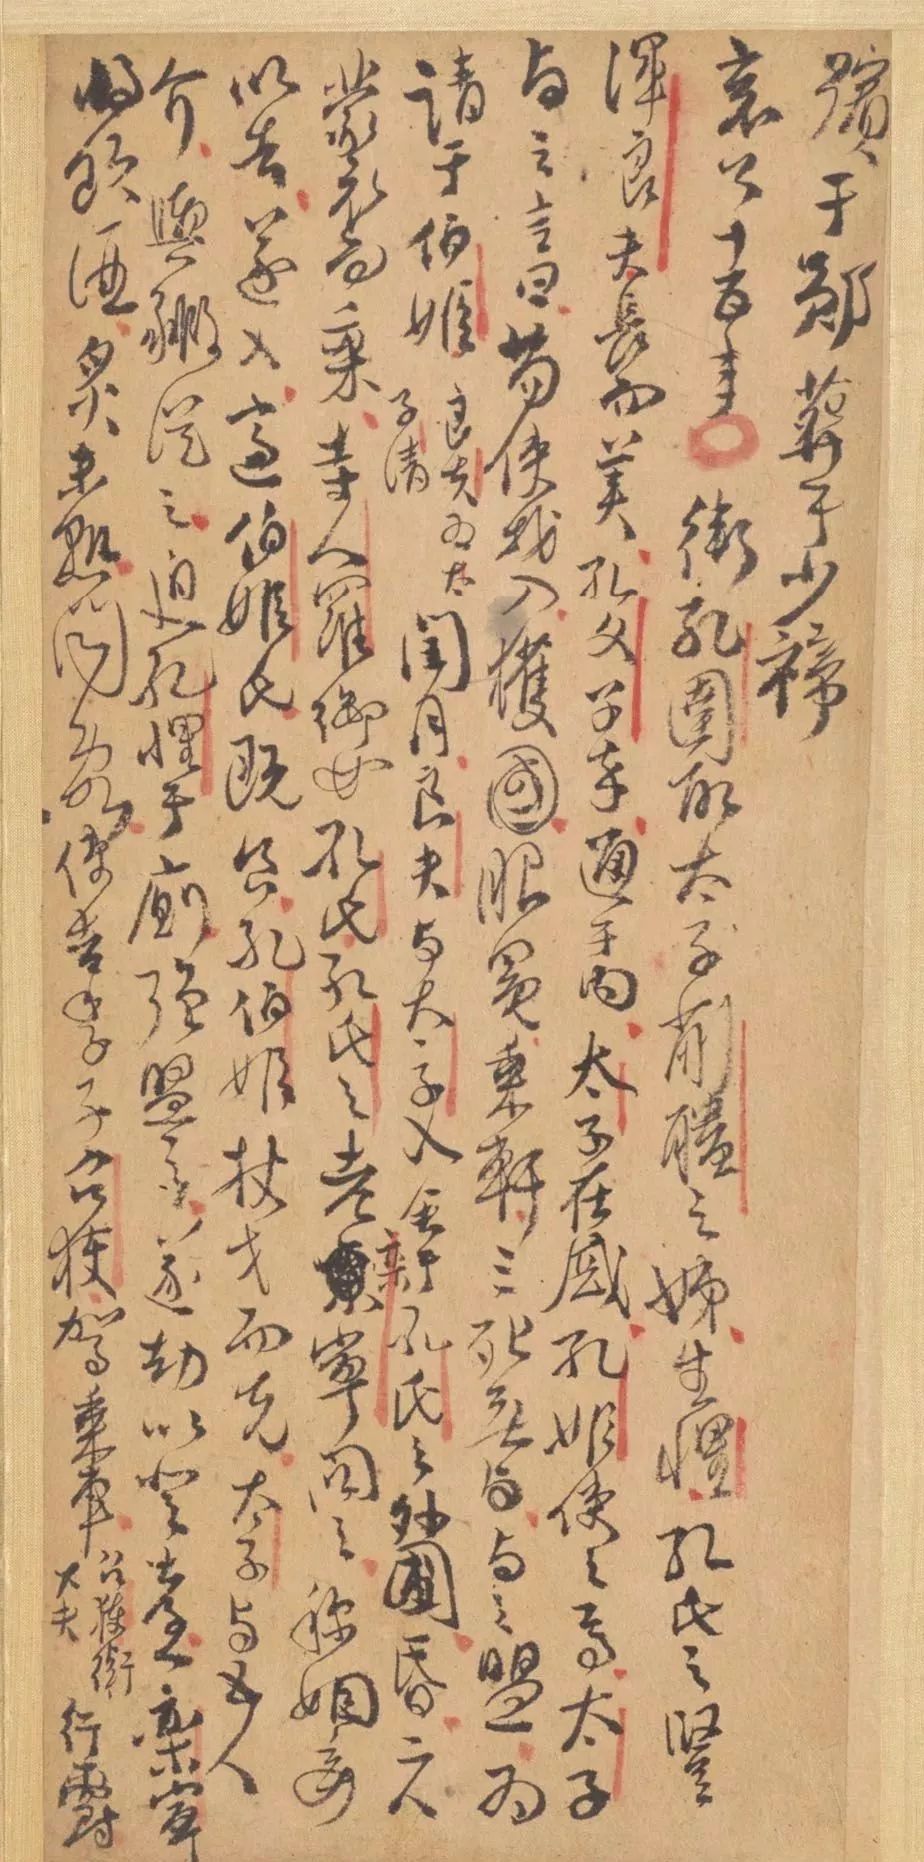 殯于鄖葬于少禘
哀公十五年 衛孔圉取太子蒯聵之姊生悝孔氏之豎
渾良夫長而美孔文子卒通于内太子在戚孔姬使之焉太子
与之言曰苟使我入獲國服冕乘軒三死無与与之盟為
請于伯姬良夫为太子請閏月良夫与太子入舍於孔氏之外圃昏二人
蒙衣而乘寺人羅御如孔氏孔氏之老欒寧問之称姻妾
以告遂入適伯姬氏既食孔伯姬杖戈而先太子与五人
介輿豭從之迫孔悝于廁强盟之遂劫以登臺欒寧
將飲酒炙未熟聞亂使告季子召獲駕乘車召獲衛大夫行爵